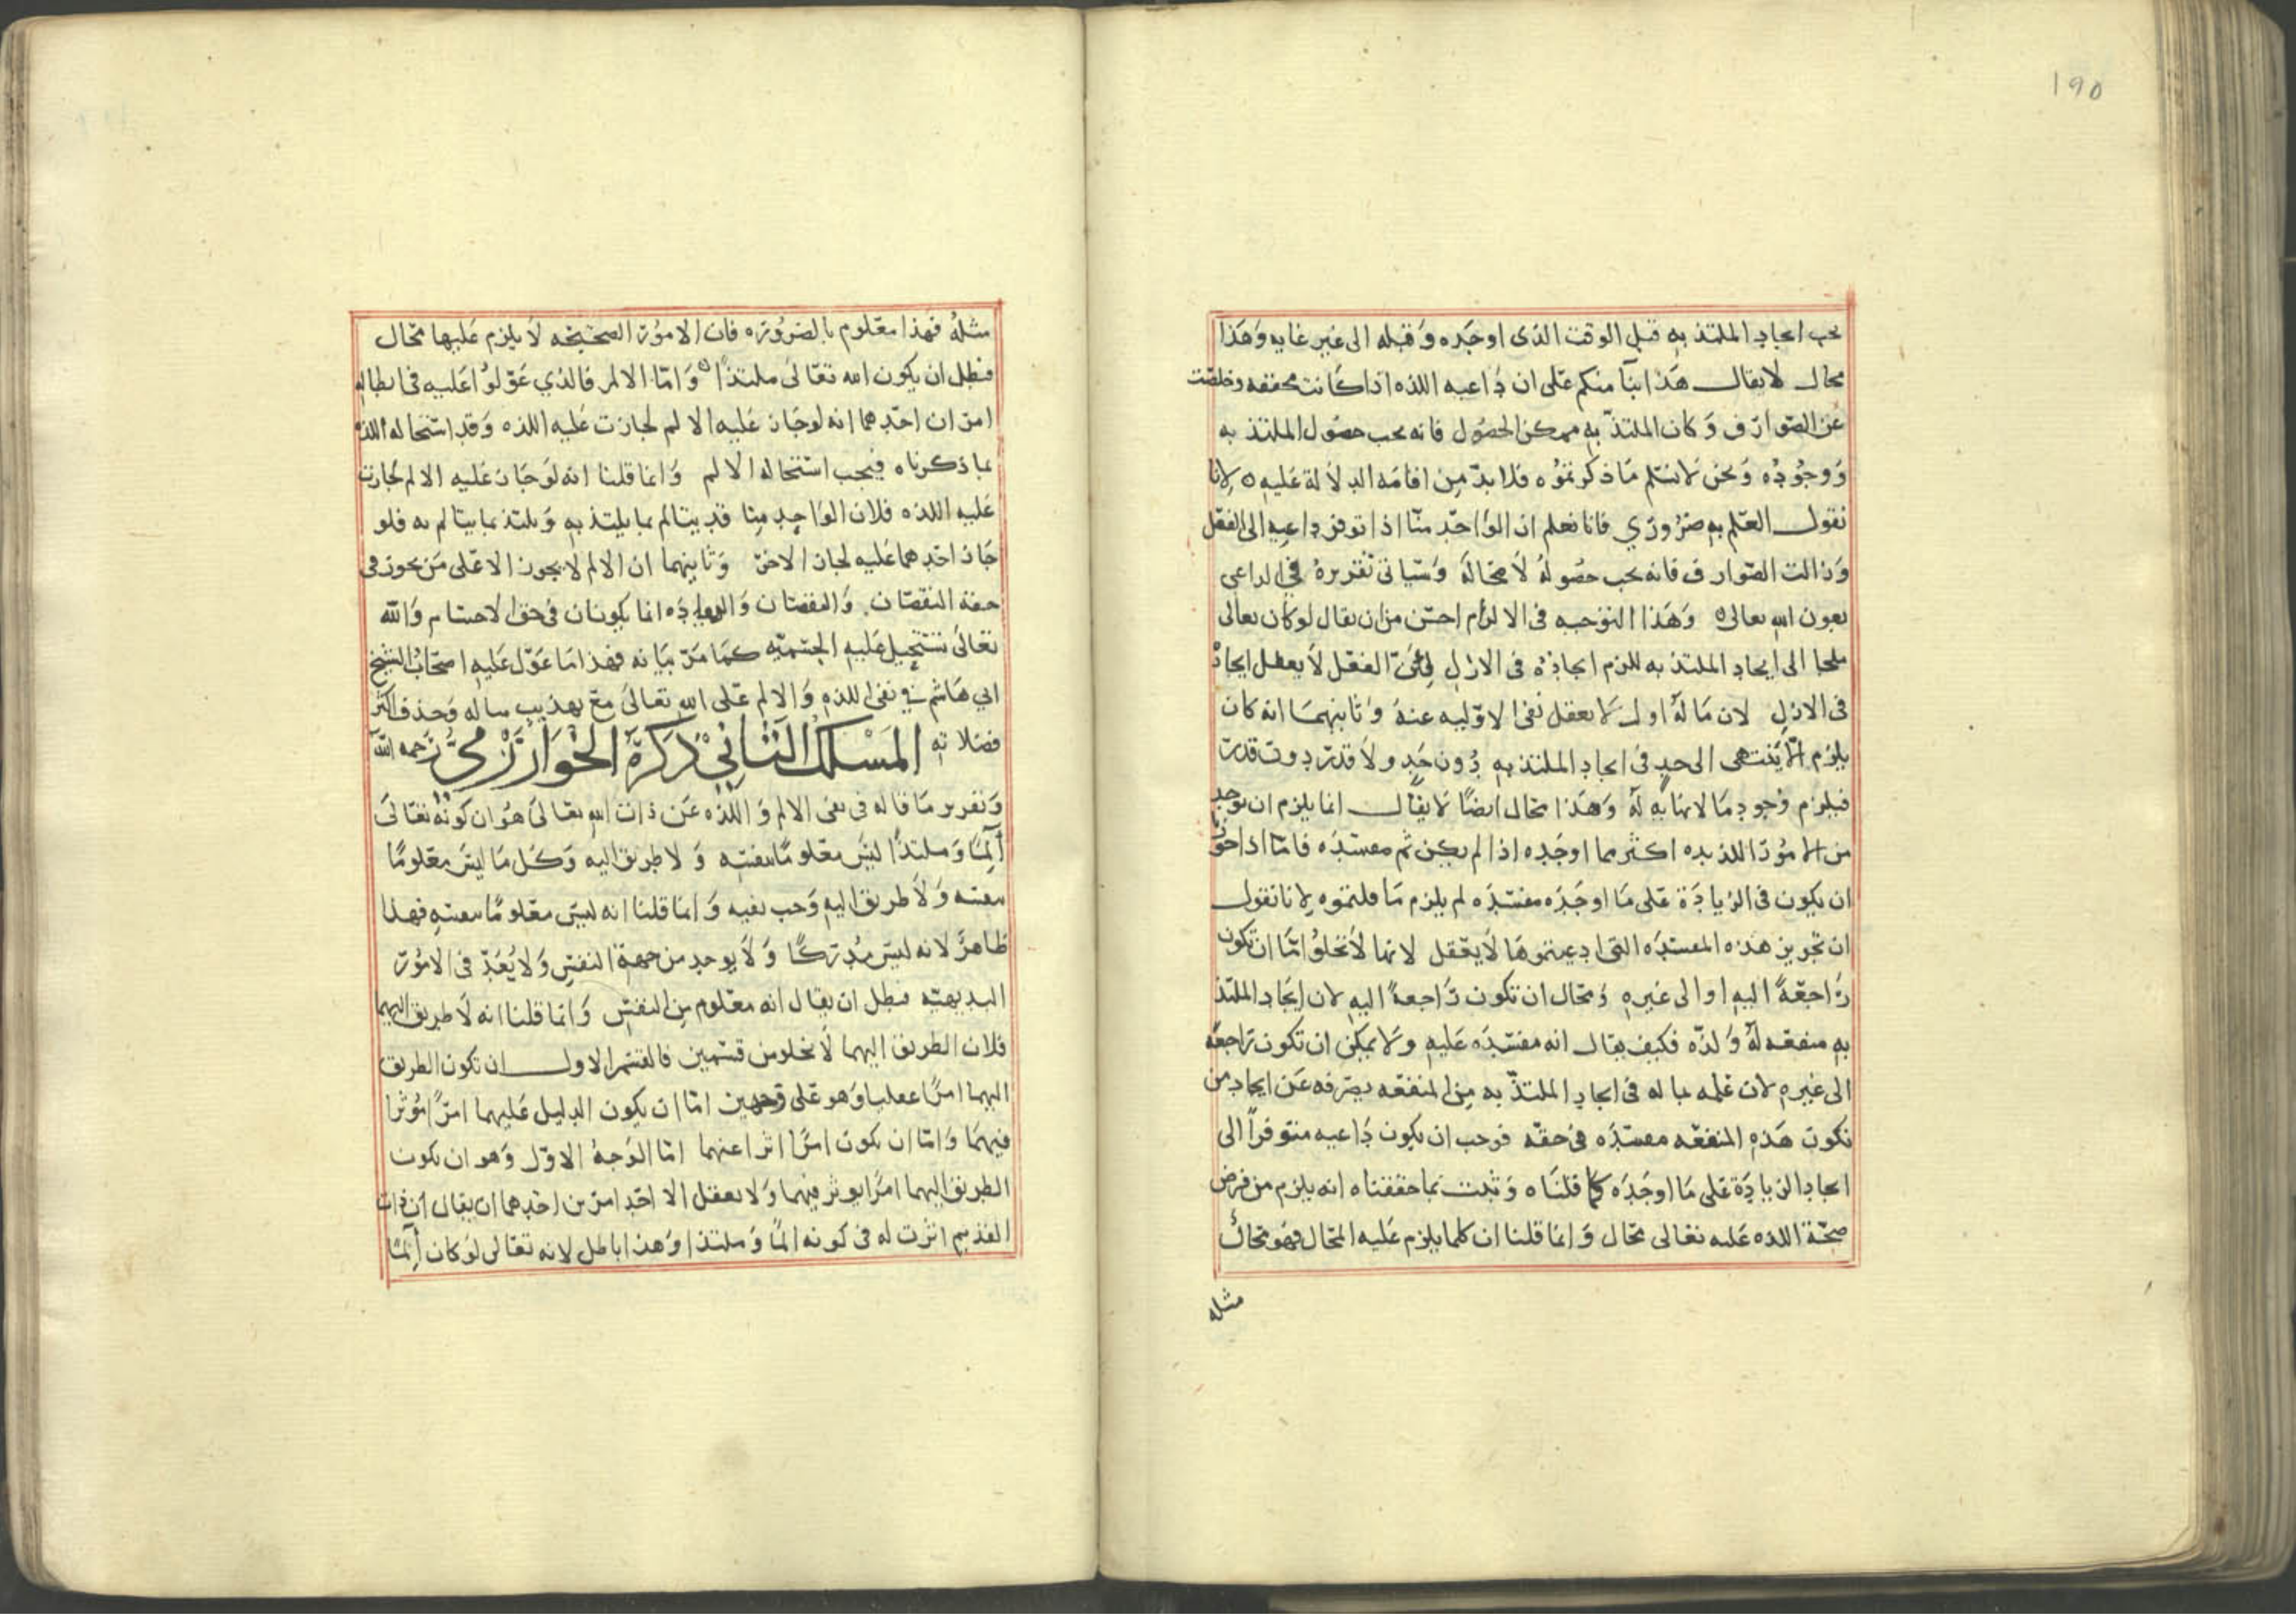 ١٩٥
يجب ايجاد الملتذ به قبل الوقت الذى اوجده وقبله الى غير غايه وهذا
محال لا يقال هذا ابنآ منكم على ان داعيه اللذه اذا كانت محققه وخلصت
عن الصوارف وكان الملتذ به ممكن الحصول فانه يجب حصول الملتذ به
ووجوده ونحن لا نسلم ما ذكرتموه فلا بد من اقامة الدلالة عليه ه لانا
نقول العلم به ضروري فانا نعلم ان الواحد منا اذا توفر داعيه الى الفعل
وزالت الصوارف فانه يجب حصوله لا محالة وسياتى تقريره في الداعى
بعون الله تعالى ه وهذا التوجيه فى الالزام احسن من ان يقال لو كان تعالى
ملجا الى ايجاد الملتذ به للزم ايجاده فى الازل لان الفعل لا يعقل ايجاده
فى الازل لان ما له اول لا يعقل نفى الاوليه عنه وثانيهما انه كان
يلزم الا ينتهى الى حد فى ايجاد الملتذ به دون حد ولا قدر دون قدر
فيلزم وجود ما لا نهايه له وهذا محال ايضًا لا يقال انما يلزم ان يوجد
من الامور اللذيذه اكثر مما اوجده اذا لم يكن ثم مفسده فاما اذا جوزنا
ان يكون فى الزيادة على ما اوجده مفسده لم يلزم ما قلتموه لانا نقول
ان تجويز هذه المفسده التى ادعيتموها لا يعقل لانها لا تخلوا اما ان تكون
راجعةً اليه او الى غيره ومحال ان تكون راجعةً اليه لان ايجاد الملتذ
به منفعه له ولذه فكيف يقال انه مفسده عليه ولا يمكن ان تكون راجعه
الى غيره لان علمه بما له فى ايجاد الملتذ به من المنفعه يصرفه عن ايجاد من
تكون هذه المنفعه مفسده فى حقه فوجب ان يكون داعيه متوفراً الى
ايجاد الزيادة على ما اوجده كما قلناه وثبت بما حققناه انه يلزم من فرض
صحة اللذه عليه تعالى محال وانما قلنا ان كلما يلزم عليه المحال فهو محال
مثله
مثله فهذا معلوم بالضروره فان الامور الصحيحه لا يلزم عليها محال
فبطل ان يكون الله تعالى ملتذاً ه واما الالم فالذي عولوا عليه فى ابطاله
امران احدهما انه لو جاز عليه الالم لجازت عليه اللذه وقد استحاله اللذه
بما ذكرناه فيجب استحاله الالم وانما قلنا انه لو جاز عليه الالم لجازت
عليه اللذه فلان الواحد منا قد يتالم بما يلتذ به ويلتذ بما يتالم به فلو
جاز احدهما عليه لجاز الاخر وثانيهما ان الالم لا يجوز الا على من يجوز فى
حقه النقصان والنقصان والزياده انما يكونان فى حق الاجسام والله
تعالى تستحيل عليه الجسميه كما مر بيانه فهذا ما عول عليه اصحاب الشيخ
ابي هاشم في نفى اللذه والالم على الله تعالى مع تهذيب مناله وحذف اكثر
فضلاته المسلك الثاني ذكره الخوارزمي رحمه الله
وتقرير ما قاله فى نفى الالم واللذه عن ذات الله تعالى هو ان كونه تعالى
آلمًا وملتذًا ليس معلومًا بنفسه ولا طريق اليه وكل ما ليس معلومًا
بنفسه ولا طريق اليه وجب نفيه وانما قلنا انه ليس معلومًا بنفسه فهذا
ظاهرً لانه ليس مدركًا ولا يوجد من جهة النفس ولا يُعَدّ فى الامور
البديهيه فبطل ان يقال انه معلوم من النفس وانما قلنا انه لا طريق اليهما
فلان الطريق اليهما لا يخلو من قسمين فالقسم الاول ان تكون الطريق
اليهما امرًا عقليا وهو على وجهين اما ان يكون الدليل عليهما امرًا مؤثرا
فيهما واما ان يكون امرًا اثرا عنهما اما الوجه الاول وهو ان يكون
الطريق اليهما امرًا يوثر فيهما ولا يعقل الا احد امرين احدهما ان يقال ان ذات
القديم اثرت له فى كونه المًا وملتذا وهذا باطل لانه تعالى لو كان آلمًا